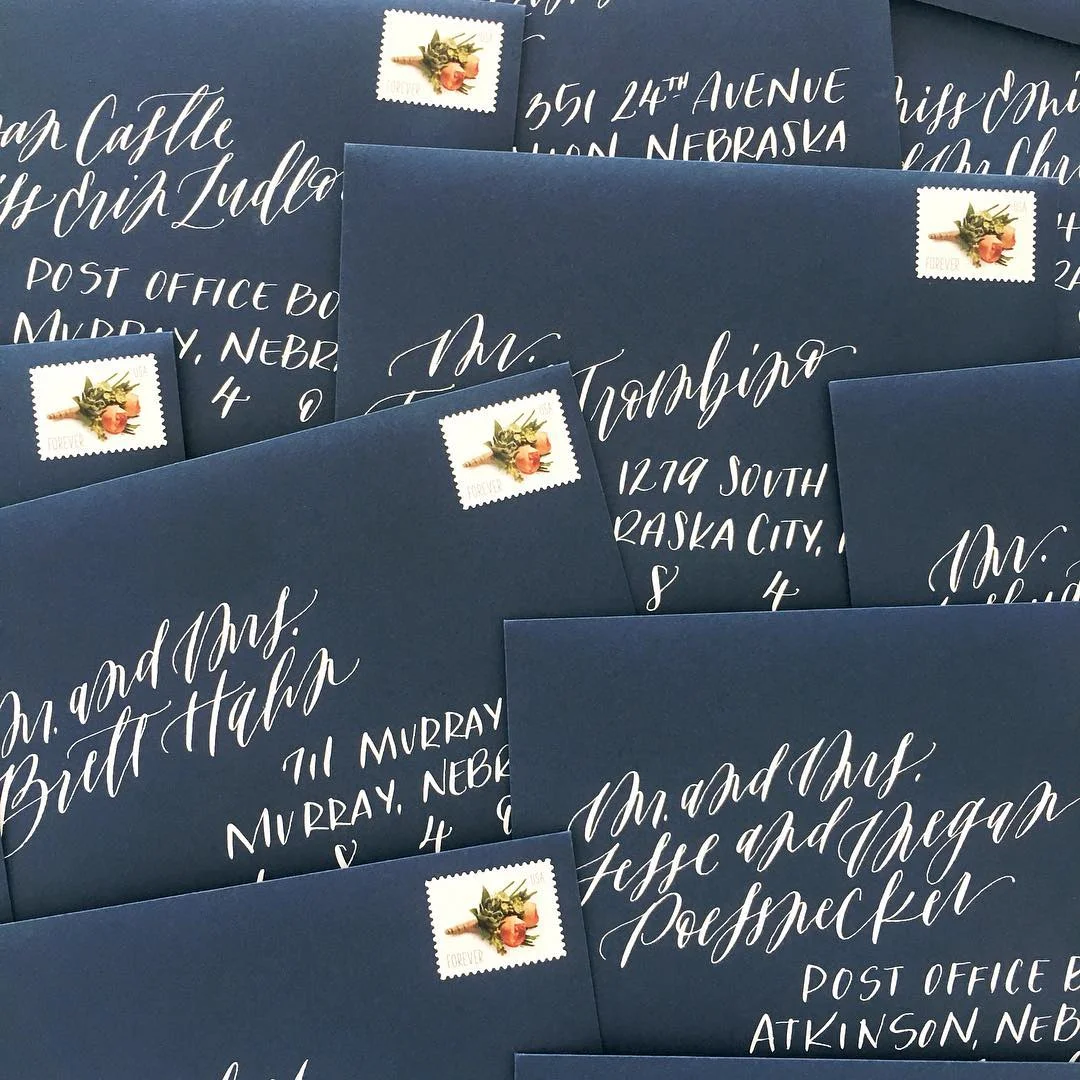 Castle
Erin Ludlo
POST OFFICE BO
MURRAY, NEBR
4 0
USA
FOREVER
351 24TH AVENUE
NEBRASKA
Miss Emi
Chri
4
USA
FOREVER
Mr.
Trombino
1279 SOUTH
RASKA CITY,
8 4
USA
FOREVER
USA
FOREVER
Mr. and Mrs.
Brett Hahn
711 MURRAY
MURRAY, NEBR
8 4 0
Mr.
Mr. and Mrs.
Jesse and Megan
Poessnecker
POST OFFICE B
ATKINSON, NEB
USA
FOREVER